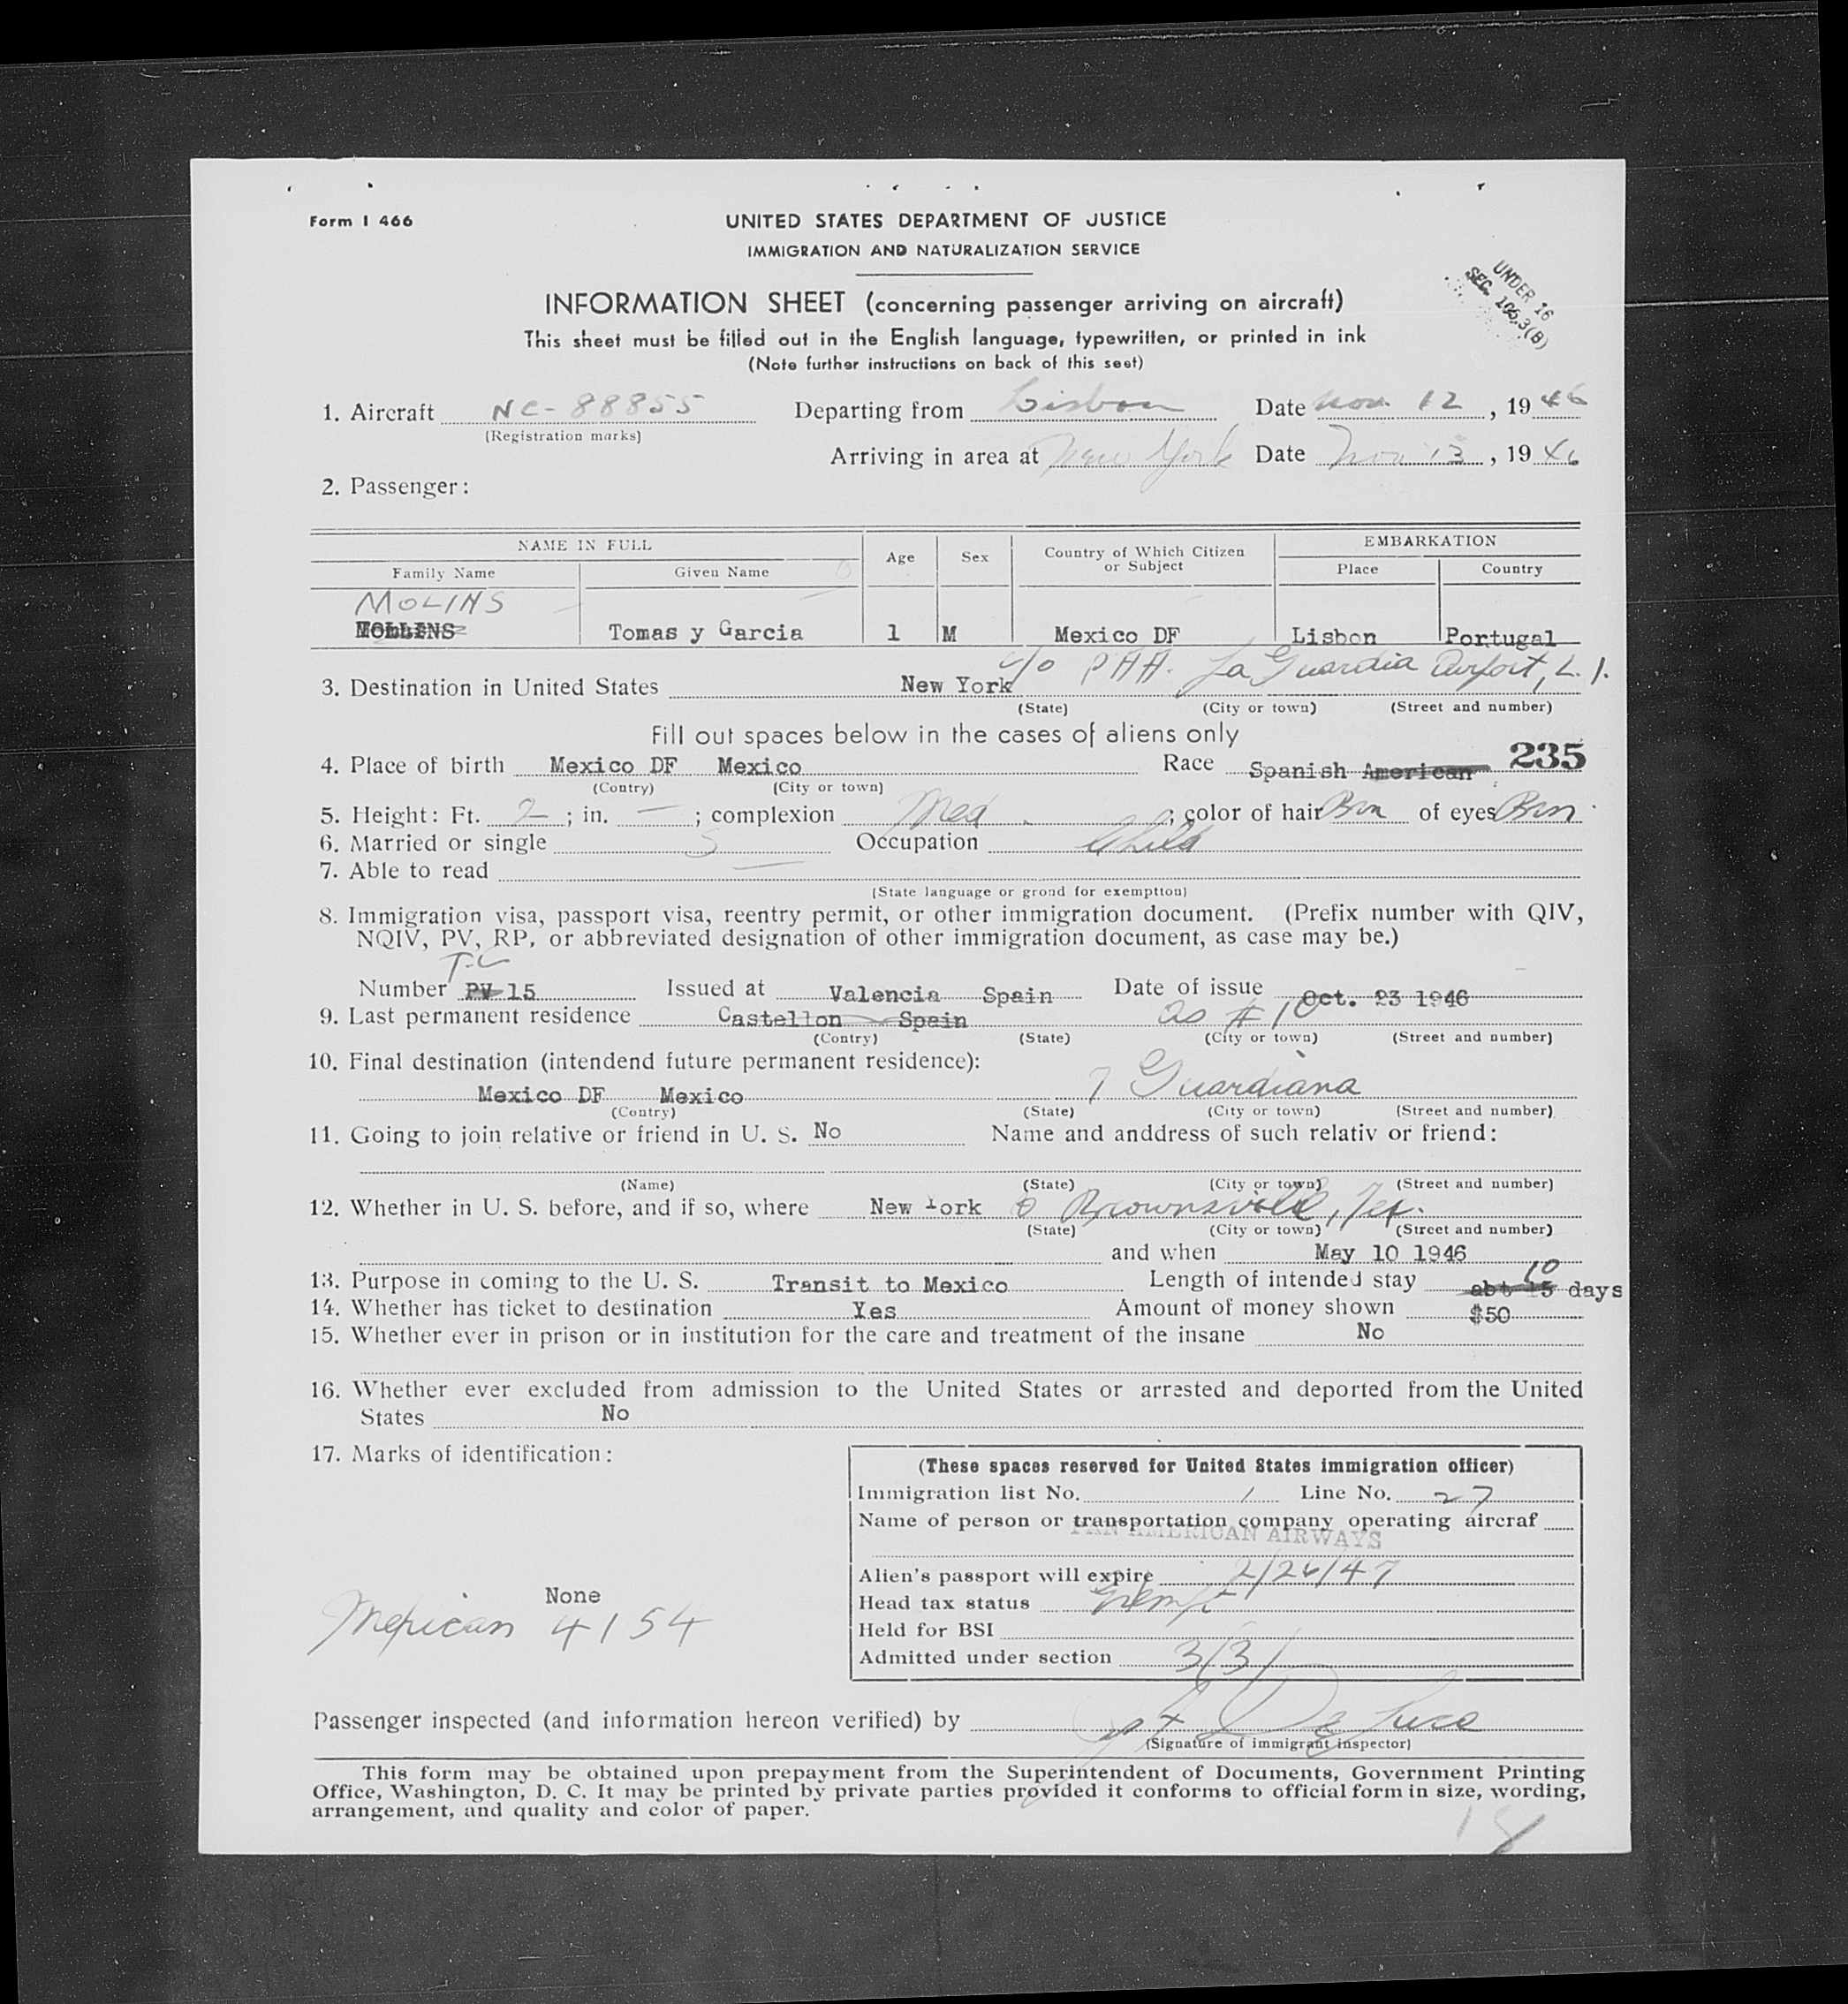 Form I 466
UNITED STATES DEPARTMENT OF JUSTICE
IMMIGRATION AND NATURALIZATION SERVICE
UNDER 16
SEC. 105.3(B)
INFORMATION SHEET (concerning passenger arriving on aircraft)
This sheet must be filled out in the English language, typewritten, or printed in ink
(Note further instructions on back of this seet)
1. Aircraft NC-88855 Departing from Lisbon Date Nov. 12, 1946
(Registration marks)
Arriving in area at New York Date Nov 13, 1946
2. Passenger:
NAME IN FULL Age Sex Country of Which Citizen or Subject EMBARKATION
Family Name Given Name Place Country
MOLINS
MOLLINS Tomas y Garcia 1 M Mexico DF Lisbon Portugal
3. Destination in United States New York c/o PAA. La Guardia Airport, L.I.
(State) (City or town) (Street and number)
Fill out spaces below in the cases of aliens only
235
4. Place of birth Mexico DF Mexico Race Spanish American
(Contry) (City or town)
5. Height: Ft. 2; in. —; complexion Med.; color of hair Brn of eyes Brn
6. Married or single S Occupation Child
7. Able to read —
(State language or grond for exemption)
8. Immigration visa, passport visa, reentry permit, or other immigration document. (Prefix number with QIV,
NQIV, PV, RP, or abbreviated designation of other immigration document, as case may be.)
T-C
Number PV 15 Issued at Valencia Spain Date of issue Oct. 23 1946
9. Last permanent residence Castellon Spain as # 10
(Contry) (State) (City or town) (Street and number)
10. Final destination (intendend future permanent residence):
Mexico DF Mexico 7 Guardiana
(Contry) (State) (City or town) (Street and number)
11. Going to join relative or friend in U. S. No Name and anddress of such relativ or friend:
(Name) (State) (City or town) (Street and number)
12. Whether in U. S. before, and if so, where New York Brownsville, Tex.
(State) (City or town) (Street and number)
and when May 10 1946
13. Purpose in coming to the U. S. Transit to Mexico Length of intended stay abt 15 10 days
14. Whether has ticket to destination Yes Amount of money shown $50
15. Whether ever in prison or in institution for the care and treatment of the insane No
16. Whether ever excluded from admission to the United States or arrested and deported from the United
States No
17. Marks of identification:
None
Mexican 4154
(These spaces reserved for United States immigration officer)
Immigration list No. 1 Line No. 27
Name of person or transportation company operating aircraf
PAN AMERICAN AIRWAYS
Alien's passport will expire 2/26/47
Head tax status Exempt
Held for BSI
Admitted under section 3(3)
Passenger inspected (and information hereon verified) by De Luca
(Signature of immigrant inspector)
This form may be obtained upon prepayment from the Superintendent of Documents, Government Printing
Office, Washington, D. C. It may be printed by private parties provided it conforms to official form in size, wording,
arrangement, and quality and color of paper.
18